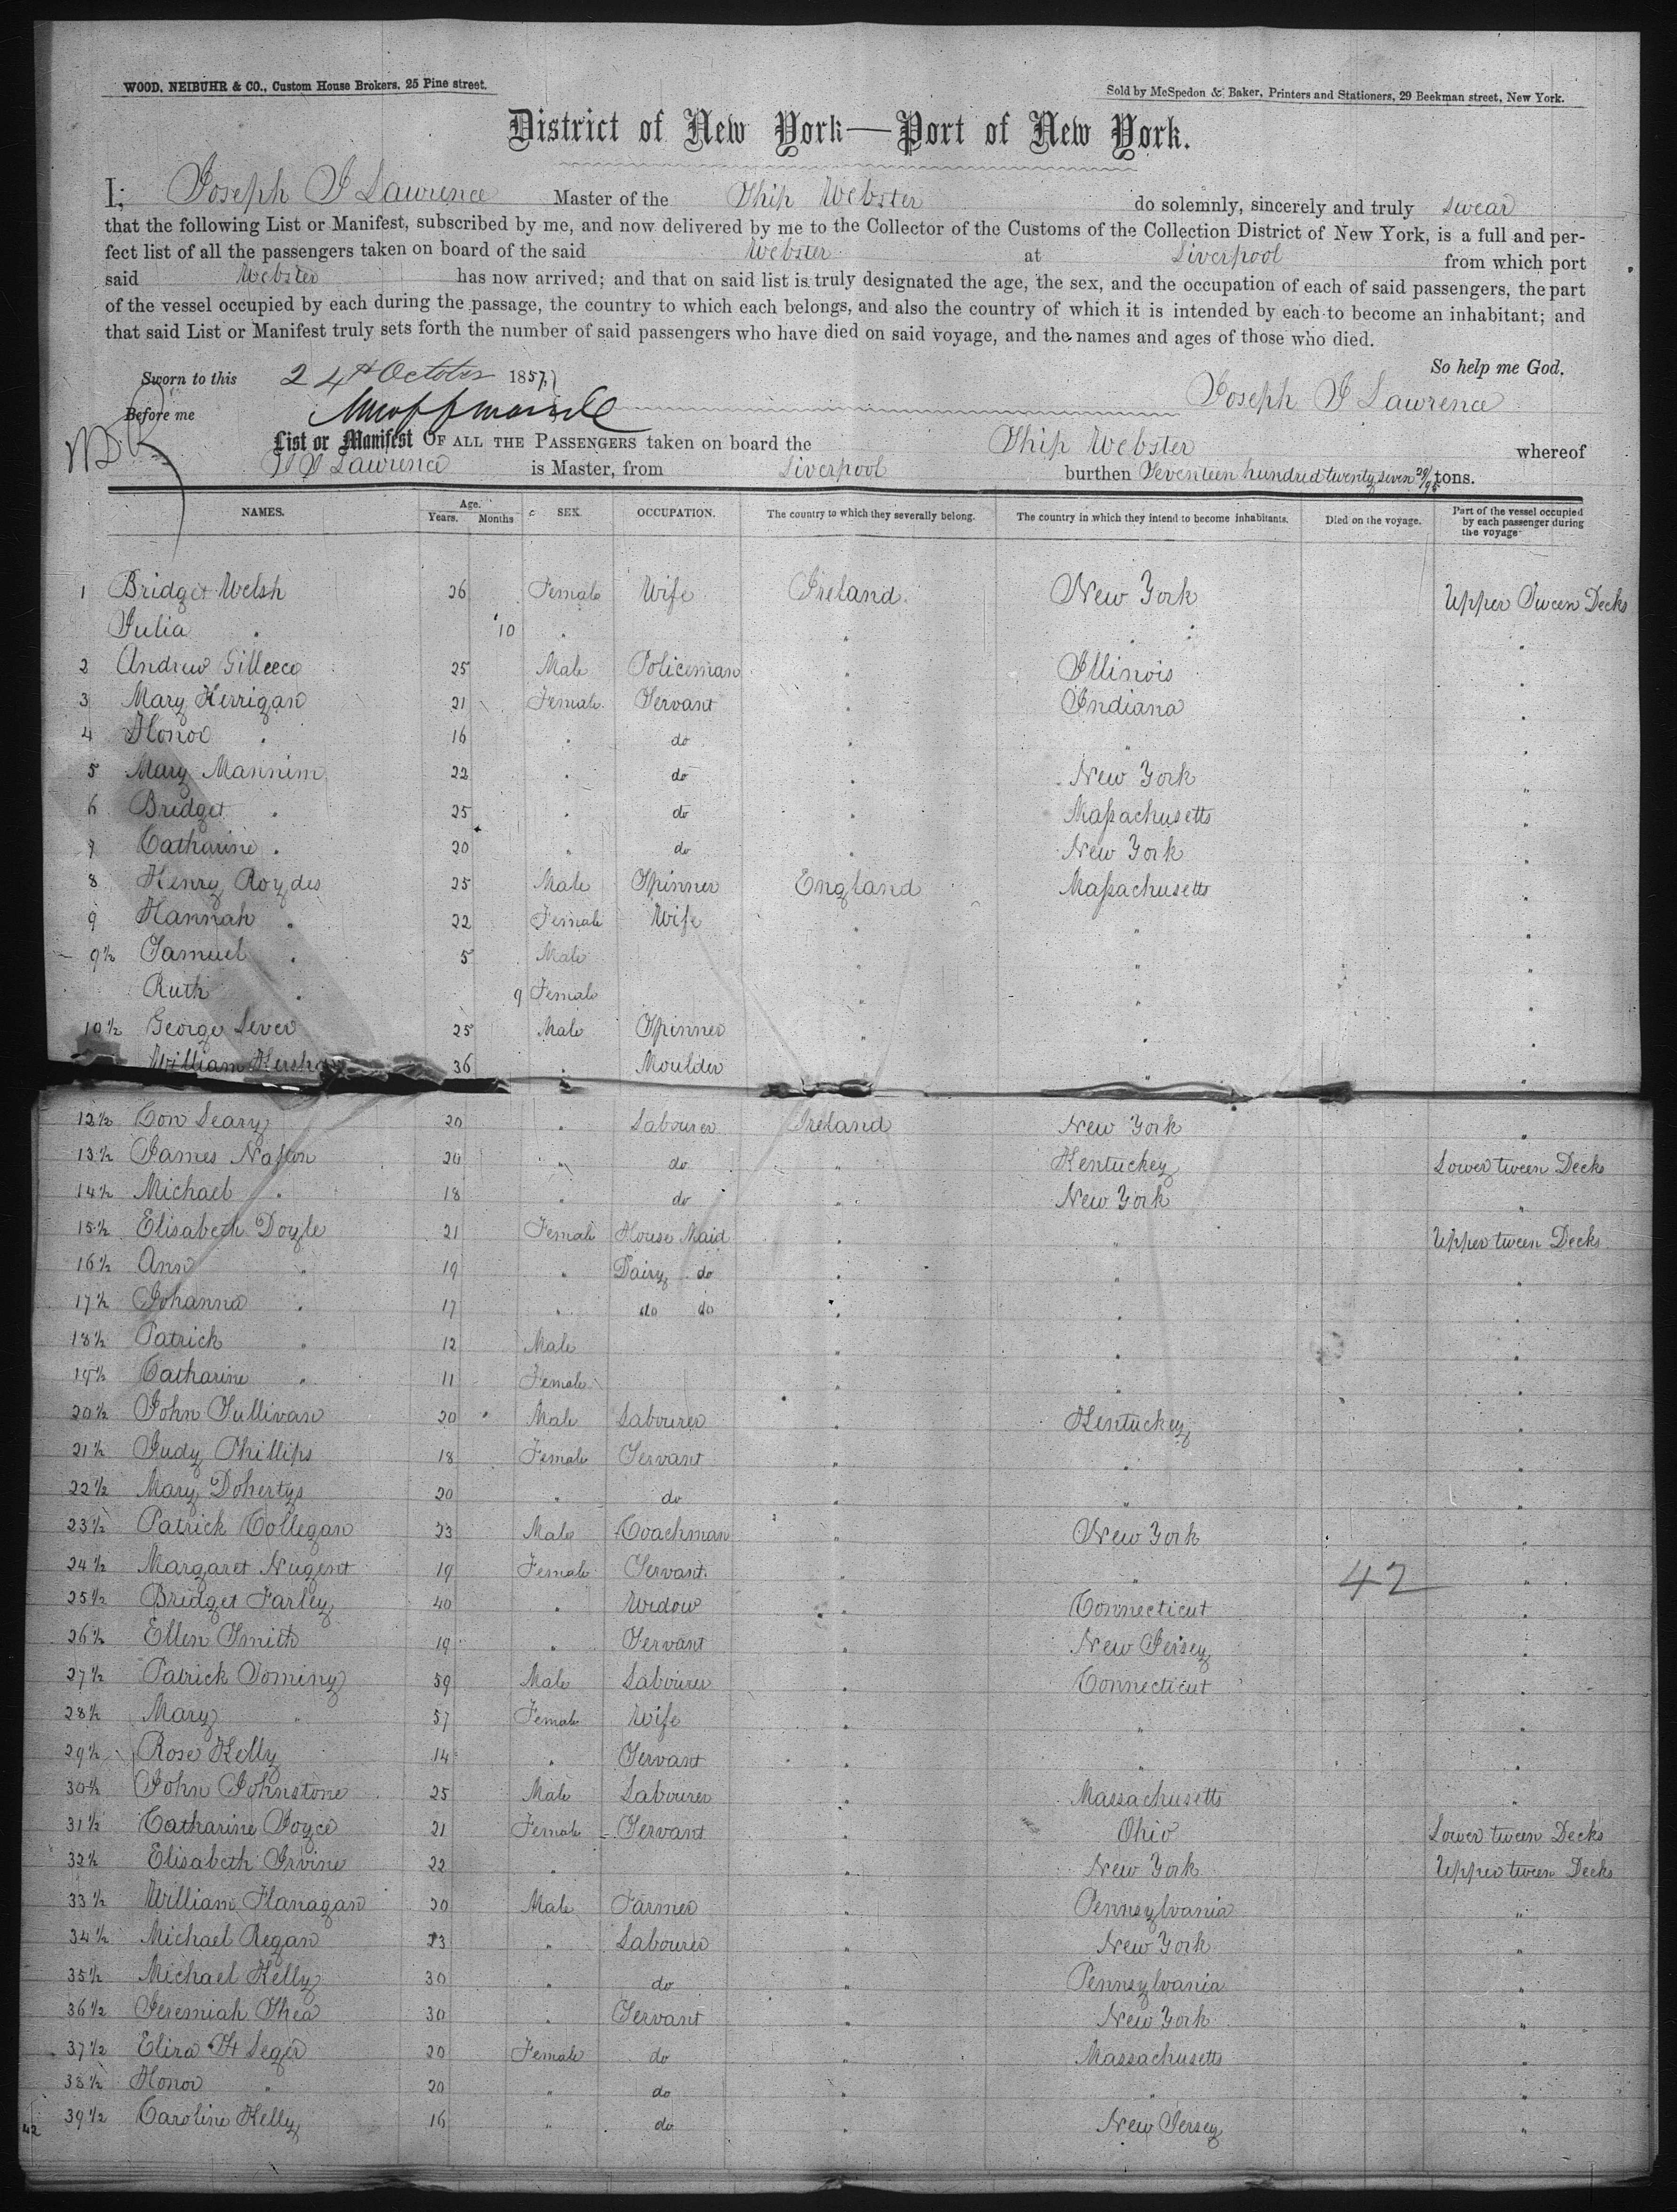 WOOD, NEIBUHR & CO., Custom House Brokers, 25 Pine street.
Sold by McSpedon & Baker, Printers and Stationers, 29 Beekman street, New York.
District of New York—Port of New York.
I, Joseph J Lawrence Master of the Ship Webster do solemnly, sincerely and truly swear
that the following List or Manifest, subscribed by me, and now delivered by me to the Collector of the Customs of the Collection District of New York, is a full and per-
fect list of all the passengers taken on board of the said Webster at Liverpool from which port
said Webster has now arrived; and that on said list is truly designated the age, the sex, and the occupation of each of said passengers, the part
of the vessel occupied by each during the passage, the country to which each belongs, and also the country of which it is intended by each to become an inhabitant; and
that said List or Manifest truly sets forth the number of said passengers who have died on said voyage, and the names and ages of those who died.
So help me God.
Sworn to this 24th October 1857
Joseph J Lawrence
Before me
List or Manifest OF ALL THE PASSENGERS taken on board the Ship Webster whereof
J J Lawrence is Master, from Liverpool burthen Seventeen hundred twenty seven 29/95 tons.
NAMES. Age. Years. Months SEX. OCCUPATION. The country to which they severally belong. The country in which they intend to become inhabitants. Died on the voyage. Part of the vessel occupied by each passenger during the voyage
1 Bridget Welsh 26 Female Wife Ireland New York Upper Tween Decks
Julia " 10 " " " "
2 Andrew Gilleece 25 Male Policeman " Illinois "
3 Mary Kerrigan 21 Female Servant " Indiana "
4 Honor " 16 " do " " "
5 Mary Mannim 22 " do " New York "
6 Bridget " 25 " do " Massachusetts "
7 Catharine " 20 " do " New York "
8 Henry Roydes 25 Male Spinner England Massachusetts "
9 Hannah " 22 Female Wife " " "
9½ Samuel " 5 Male " " "
Ruth " 9 Female " " "
10½ George Lever 25 Male Spinner " " "
William Kershaw 36 " Moulder " " "
12½ Con Leary 20 " Labourer Ireland New York "
13½ James Naston 20 " do " Kentucky Lower tween Decks
14½ Michael " 18 " do " New York "
15½ Elisabeth Doyle 21 Female House Maid " " Upper tween Decks
16½ Ann " 19 " Dairy do " " "
17½ Johanna " 17 " do do " " "
18½ Patrick " 12 Male " " "
19½ Catharine " 11 Female " " "
20½ John Sullivan 20 Male Labourer " Kentucky "
21½ Judy Phillips 18 Female Servant " " "
22½ Mary Dohertys 20 " do " " "
23½ Patrick Collegan 23 Male Coachman " New York "
24½ Margaret Nugent 19 Female Servant " " 42 "
25½ Bridget Farley 40 " Widow " Connecticut "
26½ Ellen Smith 19 " Servant " New Jersey "
27½ Patrick Tominy 59 Male Labourer " Connecticut "
28½ Mary " 57 Female Wife " " "
29½ Rose Kelly 14 " Servant " " "
30½ John Johnstone 25 Male Labourer " Massachusetts "
31½ Catharine Joyce 21 Female Servant " Ohio Lower tween Decks
32½ Elisabeth Irvine 22 " " New York Upper tween Decks
33½ William Flanagan 20 Male Farmer " Pennsylvania "
34½ Michael Regan 23 " Labourer " New York "
35½ Michael Kelly 30 " do " Pennsylvania "
36½ Jeremiah Shea 30 " Servant " New York "
37½ Eliza St Leger 20 Female do " Massachusetts "
38½ Honor " 20 " do " " "
39½ Caroline Kelly 16 " do " New Jersey "
42